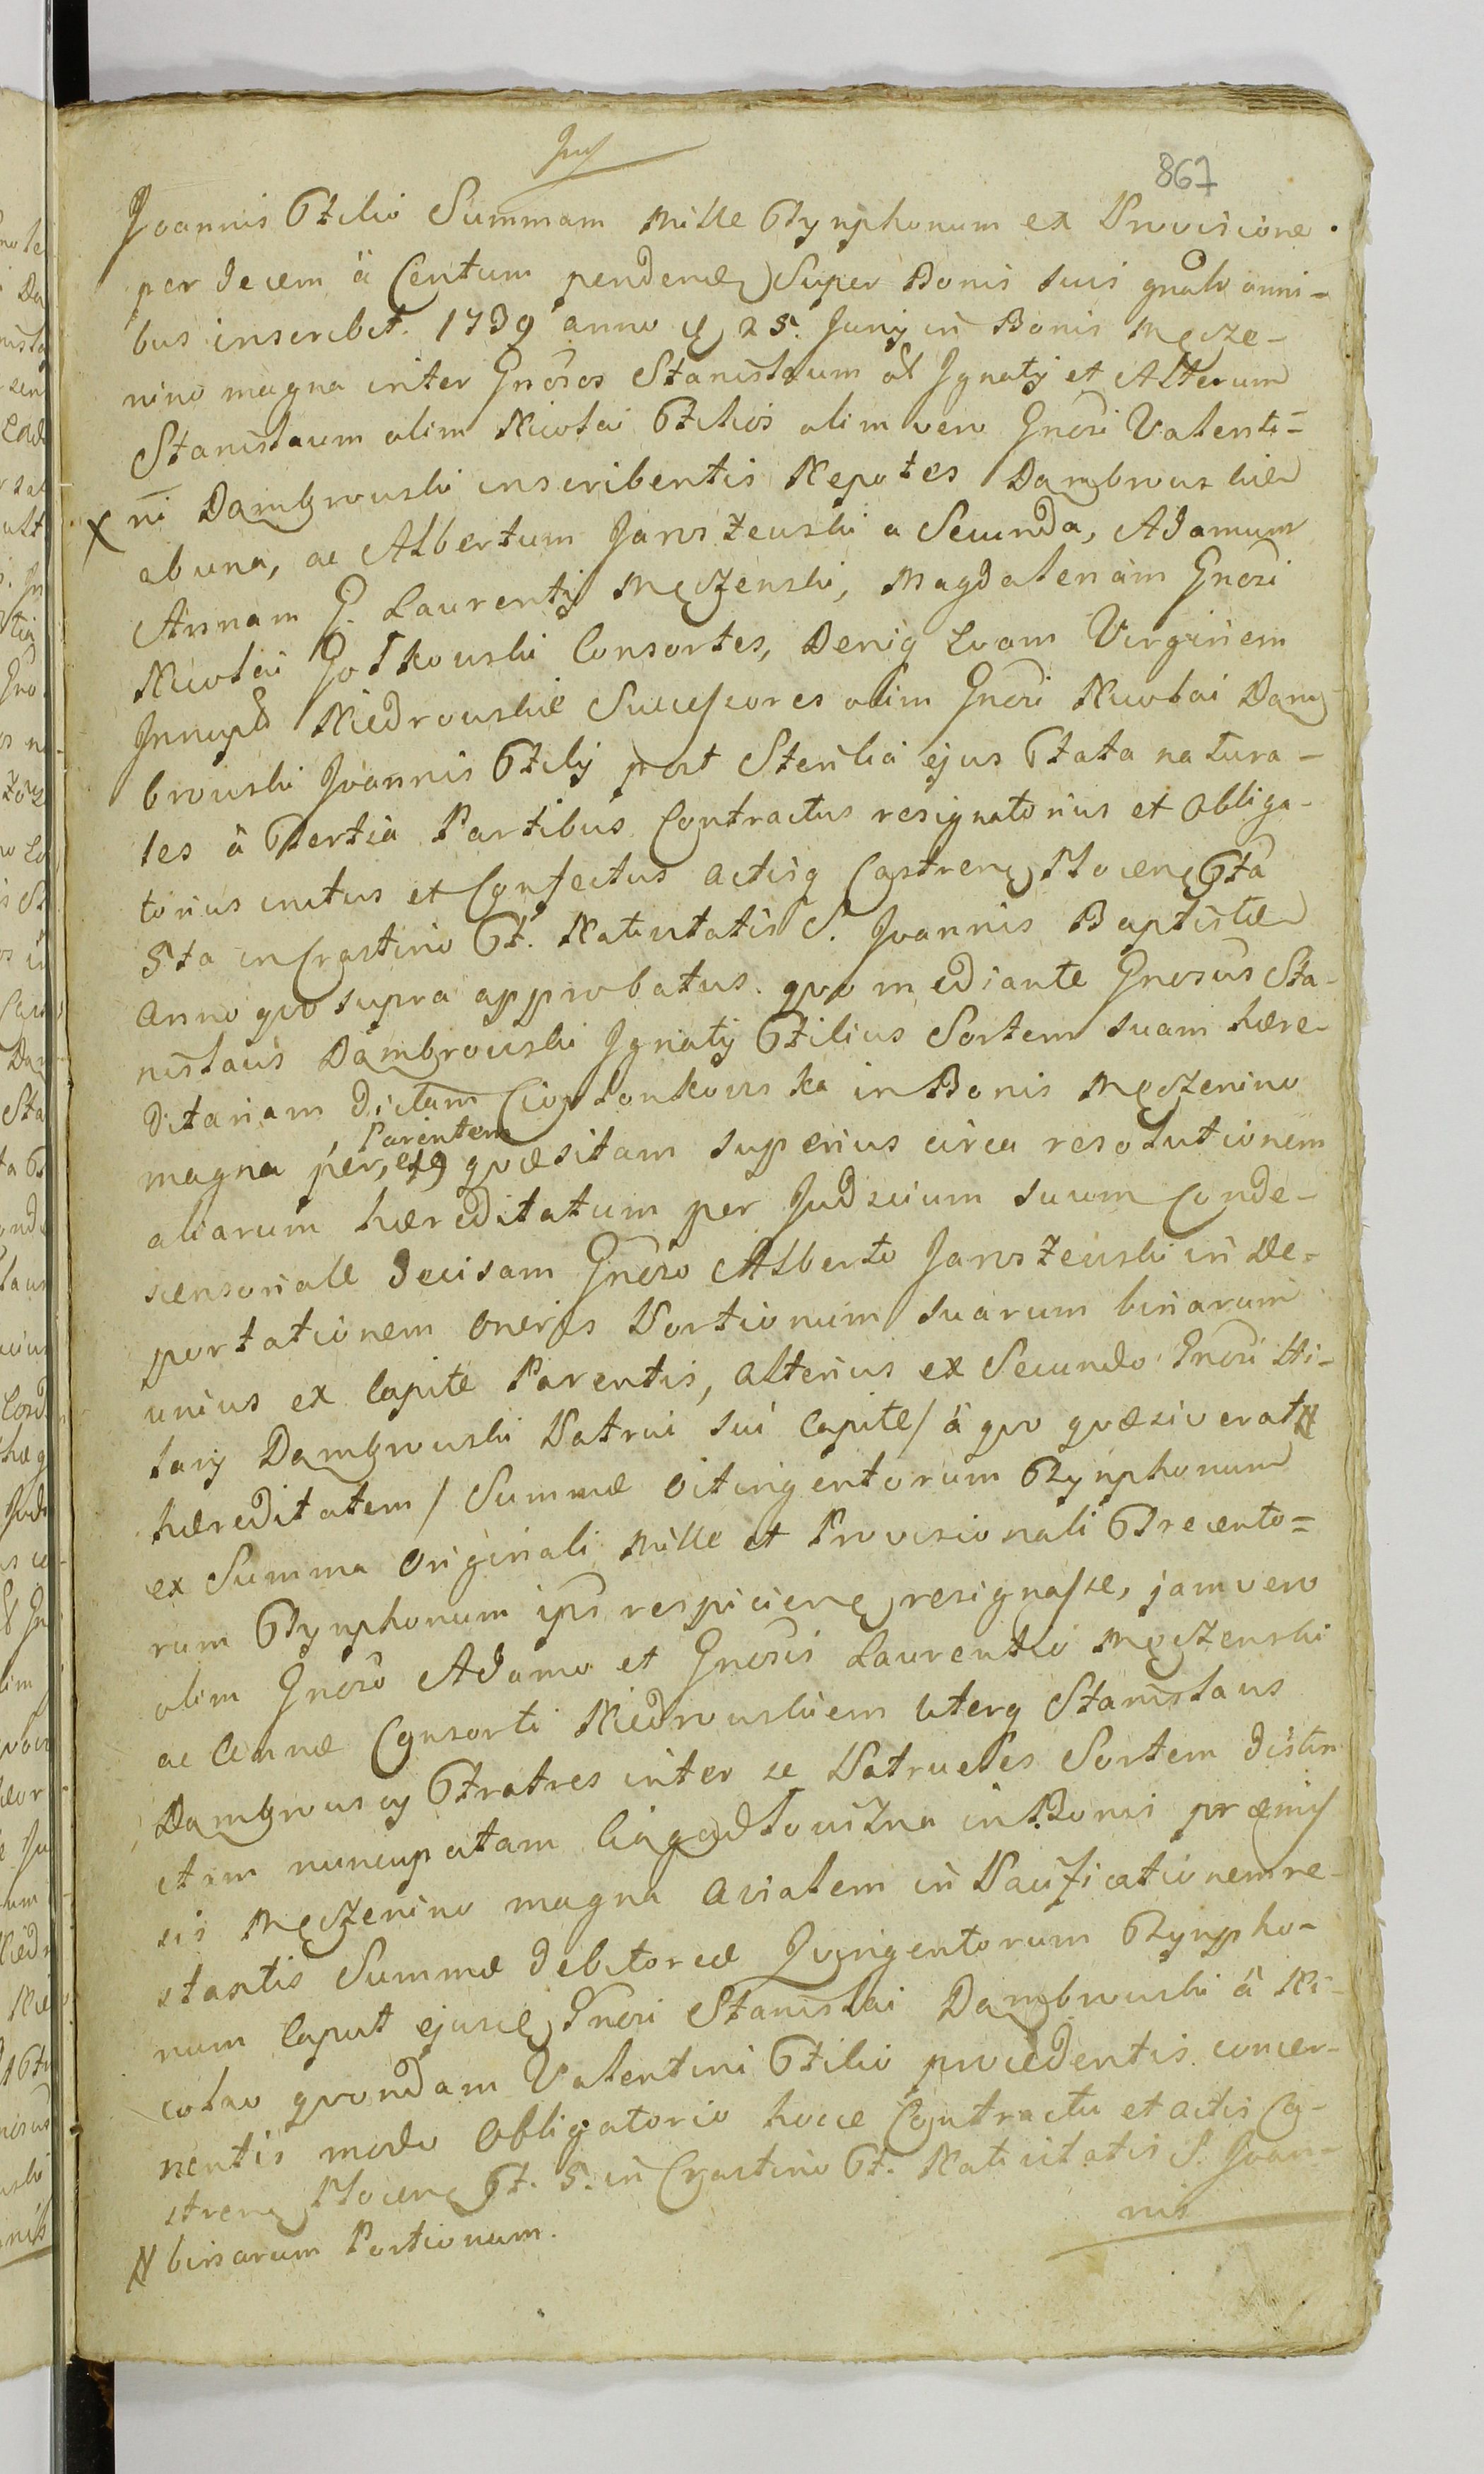 867
Joannis Filio Summam Mille Tynphonum ex Provisione
per decem à Centum pendenę Super Bonis suis gnalr omni-
bus inscribit. 1739 anno ę 25. Junij in Bonis Męcze-
nino magna inter Gnosos Stanislaum ol Ignatij et Alterum
Stanislaum olim Nicolai Filios olim vero Gnosi Valenti-
X ni Dambrowski inscribentis Nepotes Dambrowskie
ab una, ac Albertum Jaroszewski a Secunda, Adamum
Annam G. Laurentij Męczenski, Magdalenam Gnosi
Nicolai Gotkowski Consortes, Deniq Evam Virginem
Innupt Niedrowskie Successores olim Gnosi Nicolai Dam
browski Joannis Filij post Sterilia ejus Fata natura-
les à Tertia Partibus Contractus resignatorius et Obliga-
torius initus et Confectus actisq Castrenę Plocenę Fta
5ta in Crastino F. Nativitatis S. Joannis Baptistæ
Anno quo supra approbatus. quo mediante Gnosus Sta-
nislaus Dambrowski Ignatij Filius Sortem suam hære-
ditariam dictam in Bonis Męczenino
magna per, Parentem quæsitam superius circa resolutionem
aliarum hæreditatum per Judicium suum Conde-
scensoriale decisam Gnoso Alberto Jaroszewski in De-
portationem Oneris Portionum suarum binarum
unius ex Capite Parentis, Alterius ex Secundo Gnosi Hi-
larij Dambrowski Patrui sui Capite / à quo quæsiverat N
hæreditatem / Summæ Octingentorum Tynphonum
ex Summa Originali Mille et Provisionali Trecento=
rum Tynphonum ipsi respicienę resignasse, jam vero
olim Gnoso Adamo et Gnosis Laurentio Męczenski
ac Annæ Consorti Niedrowskiem uterq Stanislaus
Dambrowscy Fratres inter se Patrueles Sortem distin
ctam nuncupatam in Bonis præmis
sis Męczenino magna Avialem in Pacificationem re-
stantis Summæ debitoreæ Quingentorum Tynpho-
num Caput ejusd Gnosi Stanislai Dambrowski à Ni-
colao quondam Valentini Filio procedentis concer-
nentis modo Obligatorio hocce Contractu et actis Ca-
strenę Plocenę F. 5. in Crastino F. Nativitatis S. Joan-
nis
N binarum Portionum.